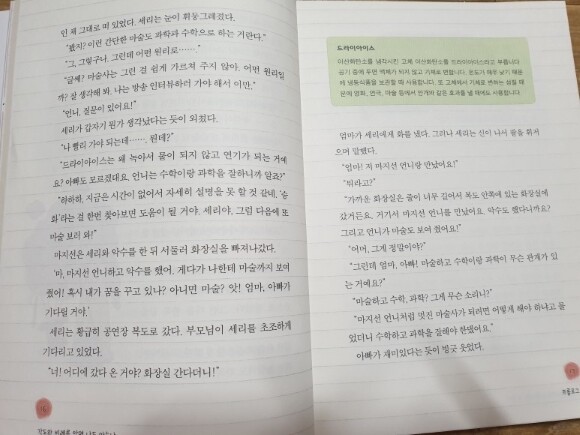 인 채 그대로 떠 있었다. 세리는 눈이 휘둥그레졌다.
"봤지? 이런 간단한 마술도 과학과 수학으로 하는 거란다."
"그, 그렇구나. 그런데 어떤 원리로……."
"글쎄? 마술사는 그런 걸 쉽게 가르쳐 주지 않아. 어떤 원리일
까? 잘 생각해 봐. 나는 방송 인터뷰하러 가야 해서 이만."
"언니, 질문이 있어요!"
세리가 갑자기 뭔가 생각났다는 듯이 외쳤다.
"나 빨리 가야 되는데……. 뭔데?"
"드라이아이스는 왜 녹아서 물이 되지 않고 연기가 되는 거예
요? 아빠도 모르겠대요. 언니는 수학이랑 과학을 잘하니까 알죠?"
"하하하, 지금은 시간이 없어서 자세히 설명을 못 할 것 같네. '승
화'라는 걸 한번 찾아보면 도움이 될 거야. 세리야, 그럼 다음에 또
마술 보러 와!"
마지션은 세리와 악수를 한 뒤 서둘러 화장실을 빠져나갔다.
'마, 마지션 언니하고 악수를 했어. 게다가 나한테 마술까지 보여
줬어! 혹시 내가 꿈을 꾸고 있나? 아니면 마술? 앗! 엄마, 아빠가
기다릴 거야.'
세리는 황급히 공연장 복도로 갔다. 부모님이 세리를 초조하게
기다리고 있었다.
"너! 어디에 갔다 온 거야? 화장실 간다더니!"
드라이아이스
이산화탄소를 냉각시킨 고체 이산화탄소를 드라이아이스라고 부릅니다.
공기 중에 두면 액체가 되지 않고 기체로 변합니다. 온도가 매우 낮기 때문
에 냉동식품을 보관할 때 사용합니다. 또 고체에서 기체로 변하는 성질 때
문에 영화, 연극, 마술 등에서 안개와 같은 효과를 낼 때에도 사용합니다.
엄마가 세리에게 화를 냈다. 그러나 세리는 신이 나서 팔을 휘저
으며 말했다.
"엄마! 저 마지션 언니랑 만났어요!"
"뭐라고?"
"가까운 화장실은 줄이 너무 길어서 복도 안쪽에 있는 화장실에
갔거든요. 거기서 마지션 언니를 만났어요. 악수도 했다니까요?
그리고 언니가 마술도 보여 줬어요!"
"어머, 그게 정말이야?"
"그런데 엄마, 아빠! 마술하고 수학이랑 과학이 무슨 관계가 있
는 거예요?"
"마술하고 수학, 과학? 그게 무슨 소리니?"
"마지션 언니처럼 멋진 마술사가 되려면 어떻게 해야 하냐고 물
었더니 수학하고 과학을 잘해야 한댔어요."
아빠가 재미있다는 듯이 빙긋 웃었다.
프롤로그